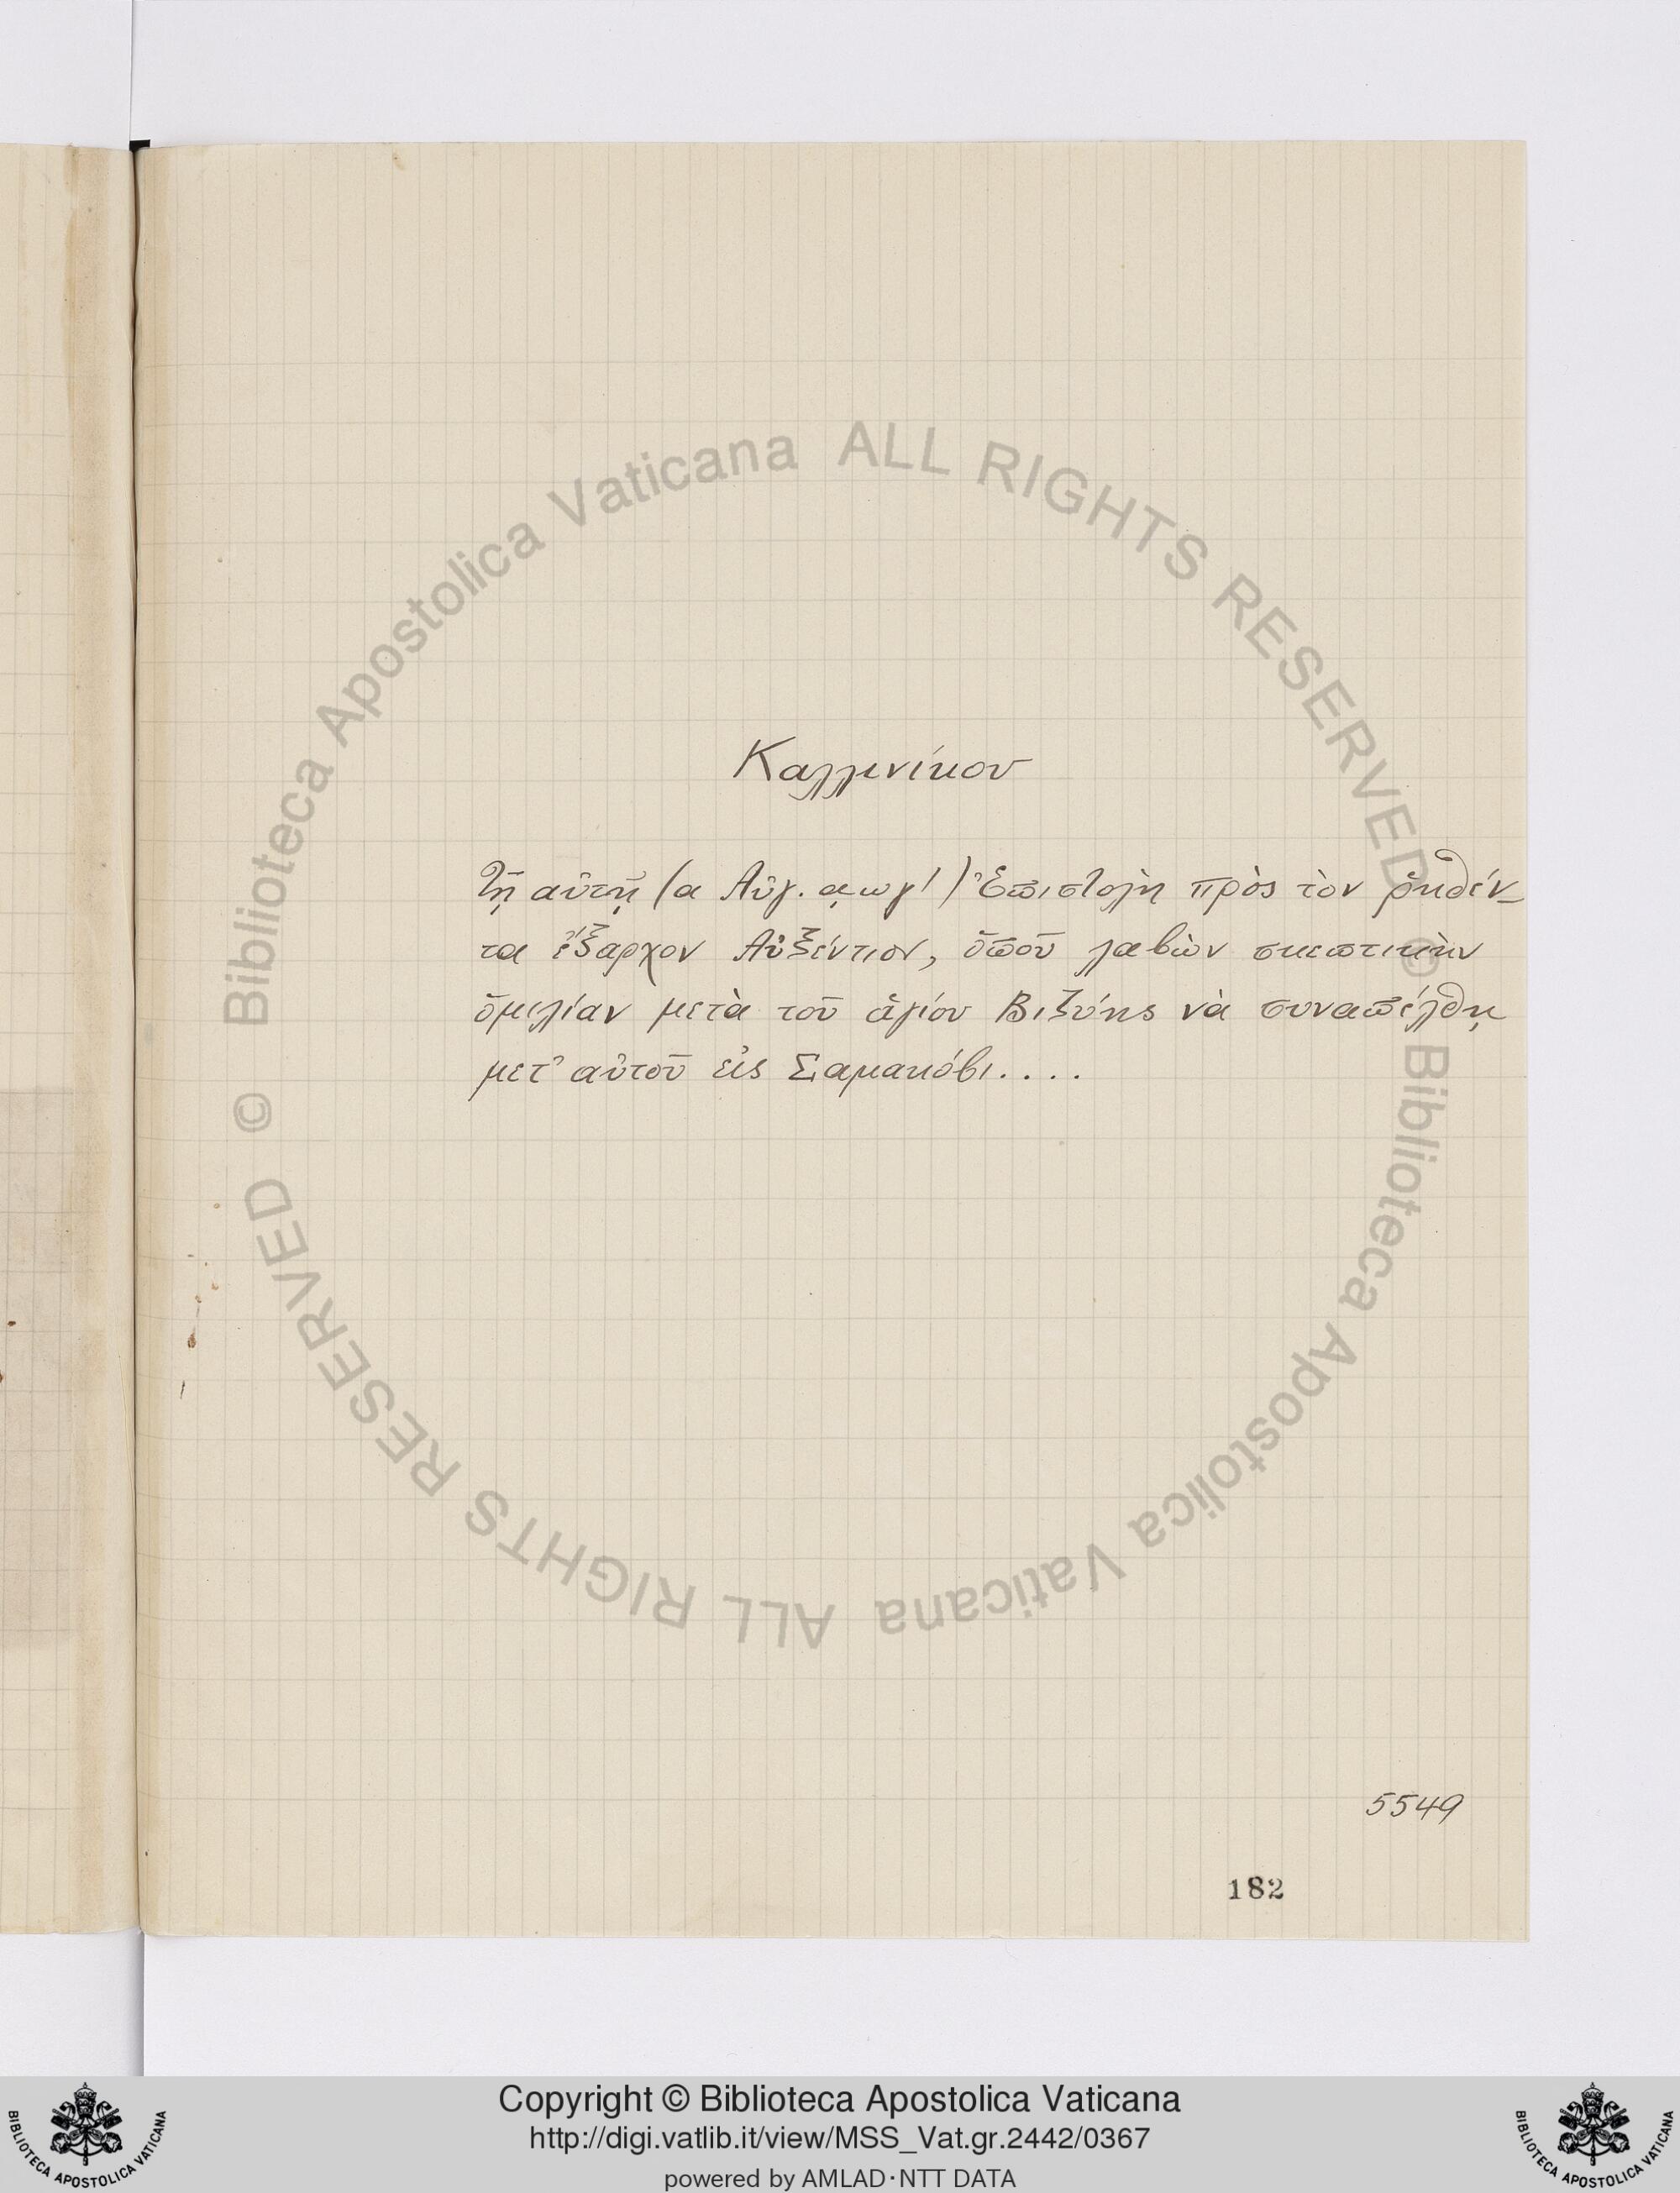 Καλλινίκου
Τῇ αὐτῇ (α Αὐγ. ͵αωγ') Ἐπιστολὴ πρὸς τὸν ῥηθέν-
τα ἔξαρχον Αὐξέντιον, ὁποῦ λαβὼν σκεπτικὴν
ὁμιλίαν μετὰ τοῦ ἁγίου Βιζύης νὰ συναπέλθῃ
μετ' αὐτοῦ εἰς Σαμακόβι....
5549
182
© Biblioteca Apostolica Vaticana ALL RIGHTS RESERVED
© Biblioteca Apostolica Vaticana ALL RIGHTS RESERVED
Copyright © Biblioteca Apostolica Vaticana
http://digi.vatlib.it/view/MSS_Vat.gr.2442/0367
powered by AMLAD·NTT DATA
BIBLIOTECA APOSTOLICA VATICANA
BIBLIOTECA APOSTOLICA VATICANA